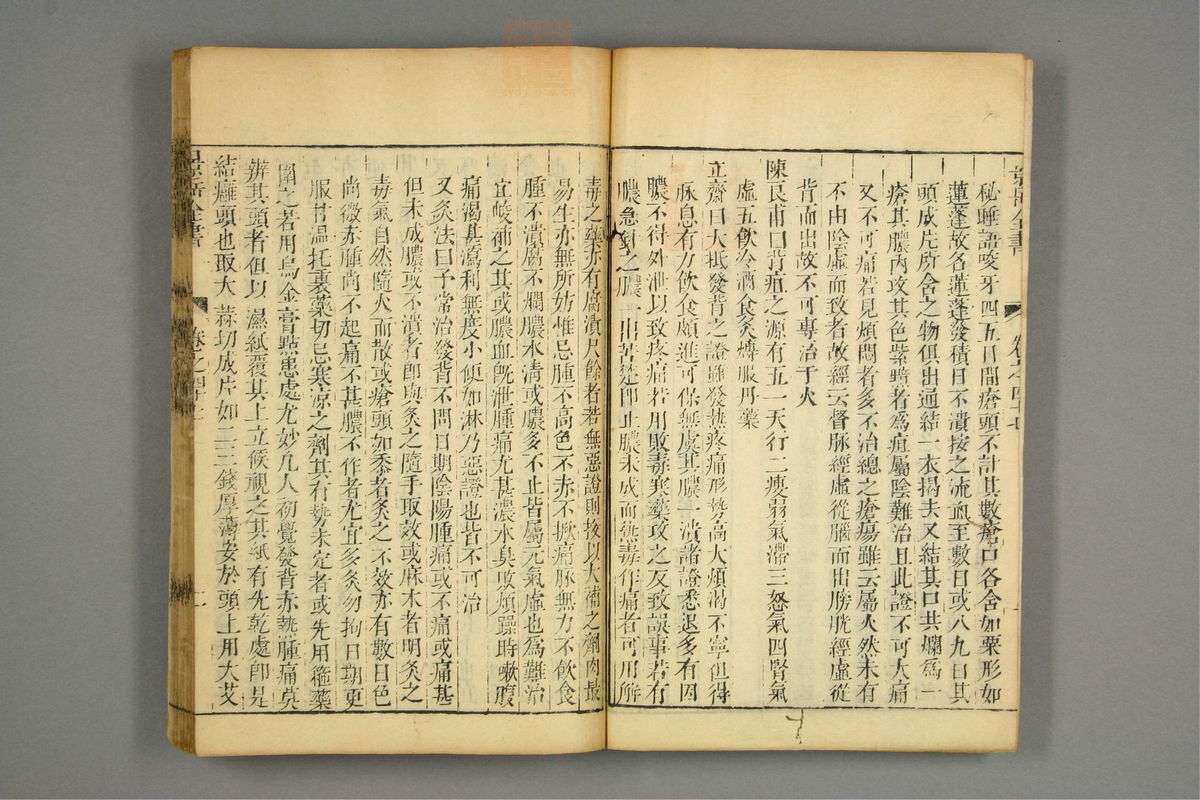 秘睡語咬牙四五日間瘡頭不計其數瘡口各含如粟形如
蓮蓬故名蓮蓬發積日不潰按之流血至數日或八九日其
頭成片所含之物俱出通結一衣揭去又結其口共爛為一
瘡其膿內攻其色紫黯者為疽屬陰難治且此證不可大痛
又不可不痛若見煩悶者多不治總之瘡瘍雖云屬火然未有
不由陰虛而致者故經云督脉經虛從腦而出膀胱經虛從
背而出故不可專治于火
陳良甫曰背疽之源有五一天行二瘦弱氣滯三怒氣四腎氣
虛五飲冷酒食炙煿服丹藥
立齋曰大抵發背之證雖發熱疼痛形勢高大煩渴不寧但得
脉息有力飲食頗進可保無虞其膿一潰諸證悉退多有因
膿不得外泄以致疼痛若用敗毒寒藥攻之反致誤事若有
膿急針之膿一出苦楚即止膿未成而熱毒作痛者可用解
毒之藥亦有腐潰尺餘者若無惡證則投以大補之劑肉最
易生亦無所妨惟忌腫不高色不赤不焮痛脉無力不飲食
腫不潰瘍不爛膿水清或膿多不止皆屬元氣虛也為難治
宜峻補之其或膿血既泄腫痛尤甚濃水臭敗煩躁時嗽腹
痛渴甚瀉利無度小便如淋乃惡證也皆不可治
又灸法曰予常治發背不問日期陰陽腫痛或不痛或痛甚
但未成膿或不潰者即與灸之隨手取效或麻木者明灸之
毒氣自然隨火而散或瘡頭如黍者灸之不效亦有數日色
尚微赤腫尚不起痛不甚膿不作者尤宜多灸勿拘日期更
服甘溫托裏藥切忌寒凉之劑其有勢未定者或先用箍藥
圍之若用烏金膏點患處尤妙凡人初覺發背赤熱腫痛莫
辨其頭者但以濕紙覆其上立候視之其紙有先乾處即是
結癰頭也取大蒜切成片如二三錢厚薄安於頭上用大艾
景岳全書
卷之四十七
景岳全書
卷之四十七
二